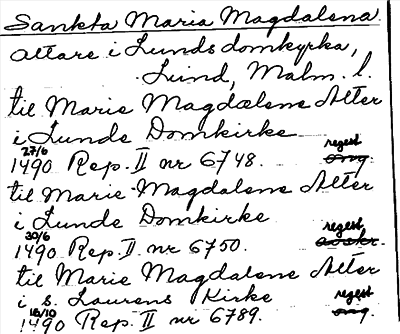 Sankta Maria Magdalena
altare i Lunds domkyrka,
Lund, Malm. l.
til Marie Magdalene Alter
i Lunde Domkirke
27/6 regest
1490 Rep. II nr 6748. omg.
til Marie Magdalene Alter
i Lunde Domkirke
30/6 regest
1490 Rep. II nr 6750. avskr.
til Marie Magdalene Alter
i s. Laurens Kirke
18/10 regest
1490 Rep. II nr 6789. omg.